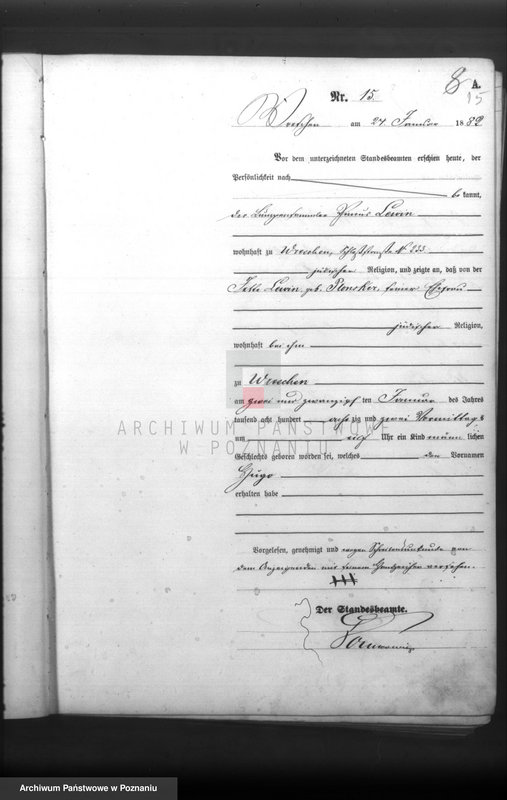 8 A.
15
Nr. 15.
Wreschen am 24 Januar 1882
Vor dem unterzeichneten Standesbeamten erschien heute, der
Persönlichkeit nach
bekannt,
der Lumpensammler Pincus Lewin
wohnhaft zu Wreschen, Schloßstraße № 233
jüdischer Religion, und zeigte an, daß von der
Jette Lewin, geb. Plonsker, seiner Ehefrau
jüdischer Religion,
wohnhaft bei ihm
zu Wreschen
am zwei und zwanzigsten Januar des Jahres
tausend acht hundert achtzig und zwei Vormittags
um Uhr ein Kind männlichen
Geschlechts geboren worden sei, welches den Vornamen
Hugo
erhalten habe
Vorgelesen, genehmigt und wegen Schreibensunkunde von
dem Anzeigenden mit seinem Handzeichen versehen.
+++
Der Standesbeamte.
ARCHIWUM PAŃSTWOWE
W POZNANIU
Archiwum Państwowe w Poznaniu